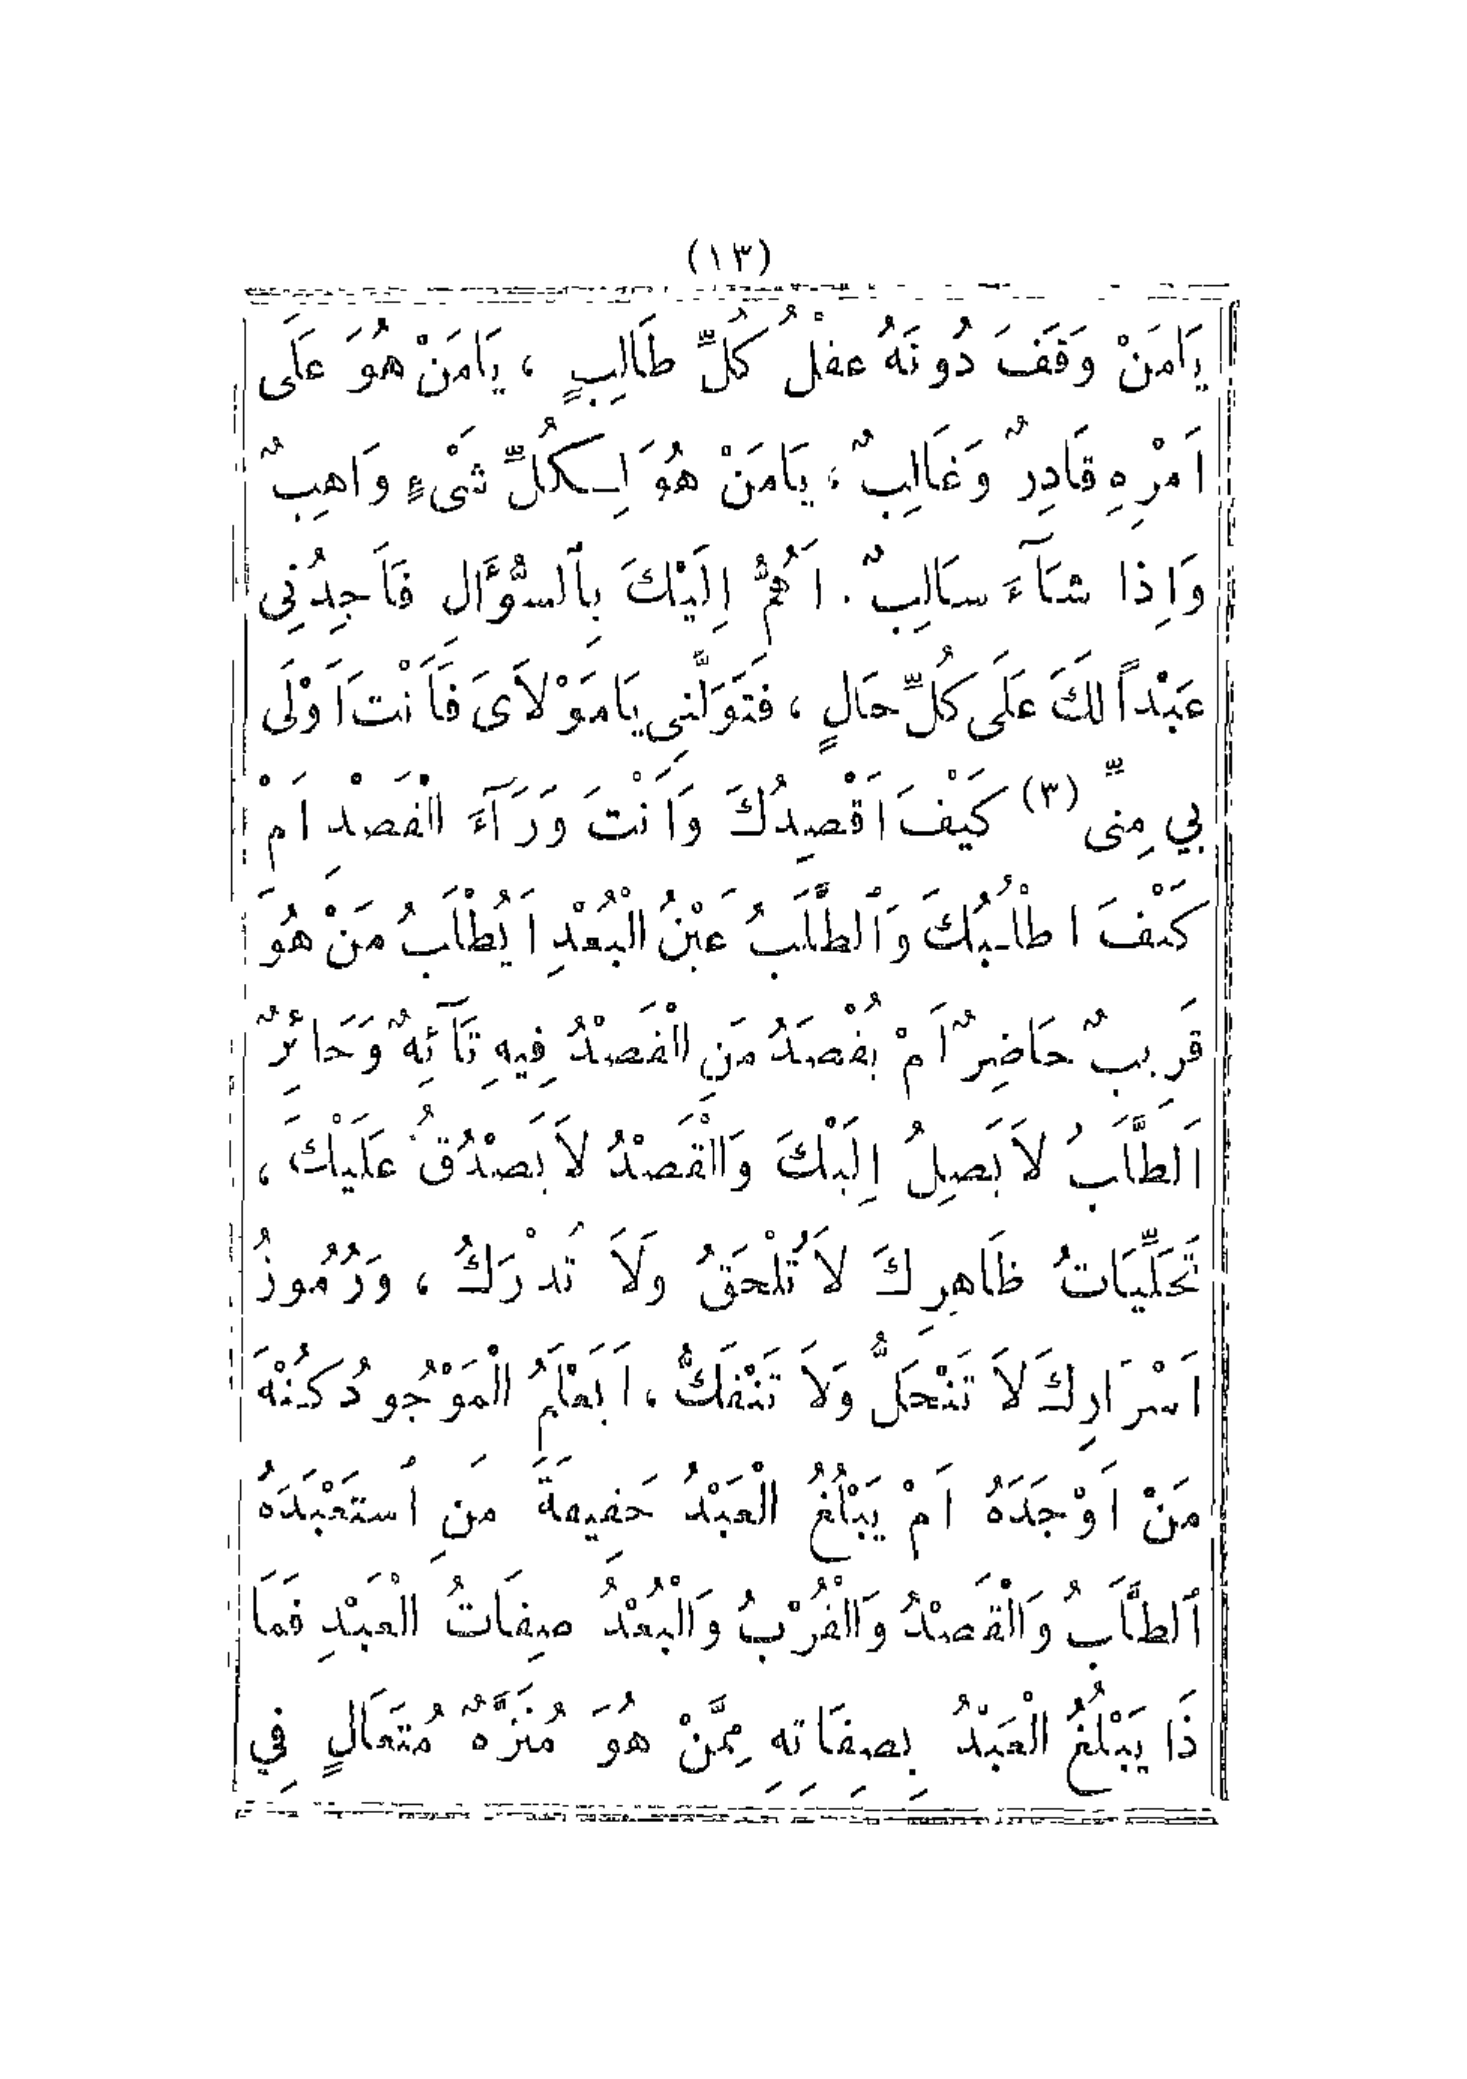 (١٣)
يَامَنْ وَقَفَ دُونَهُ عقْلُ كُلِّ طَالِبٍ ، يَامَنْ هُوَ عَلَى
اَمْرِهِ قَادِرٌ وَغَالِبٌ ، يَامَنْ هُوَ لِكُلِّ شَىْءٍ وَاهِبٌ
وَاِذا شَآءَ سَالِبٌ . اَهُمُّ اِلَيْكَ بِٱلسُّؤَّالِ فَاَجِدُنِي
عَبْداً لَكَ عَلَى كُلِّ حَالٍ ، فَتَوَلَّنِي يَامَوْلاَىَ فَاَنْتَ اَوْلَى
بِي مِنِّى (٣) كَيْفَ اَقْصِدُكَ وَاَنْتَ وَرَآءَ الْقَصْدِ اَمْ
كَيْفَ اطْلُبُكَ وَٱلطَّلَبُ عَيْنُ الْبُعْدِ اَيُطْلَبُ مَنْ هُوَ
قَرِيبٌ حَاضِرٌ اَمْ يُقْصَدُ مَنِ الْقَصْدُ فِيهِ تَآئِهٌ وَحَائِرٌ
اَلطَّلَبُ لاَيَصِلُ اِلَيْكَ وَالْقَصْدُ لاَيَصْدُقُ عَلَيْكَ ،
تَجَلِّيَاتُ ظَاهِرِكَ لاَتُلْحَقُ وَلاَ تُدْرَكُ ، وَرُمُوزُ
اَسْرَارِكَ لاَ تَنْحَلُّ وَلاَ تَنْفَكُّ ، اَيَعْلَمُ الْمَوْجُودُ كُنْهَ
مَنْ اَوْجَدَهُ اَمْ يَبْلُغُ الْعَبْدُ حَقِيقَةَ مَنِ ٱسْتَعْبَدَهُ
ٱلطَّلَبُ وَالْقَصْدُ وَالْقُرْبُ وَالْبُعْدُ صِفَاتُ الْعَبْدِ فَمَا
ذَا يَبْلُغُ الْعَبْدُ بِصِفَاتِهِ مِمَّنْ هُوَ مُنَزَّهٌ مُتَعَالٍ فِي